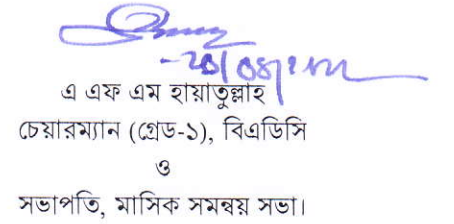 এ এফ এম হায়াতুল্লাহ
চেয়ারম্যান (গ্রেড-১), বিএডিসি
ও
সভাপতি, মাসিক সমন্বয় সভা।